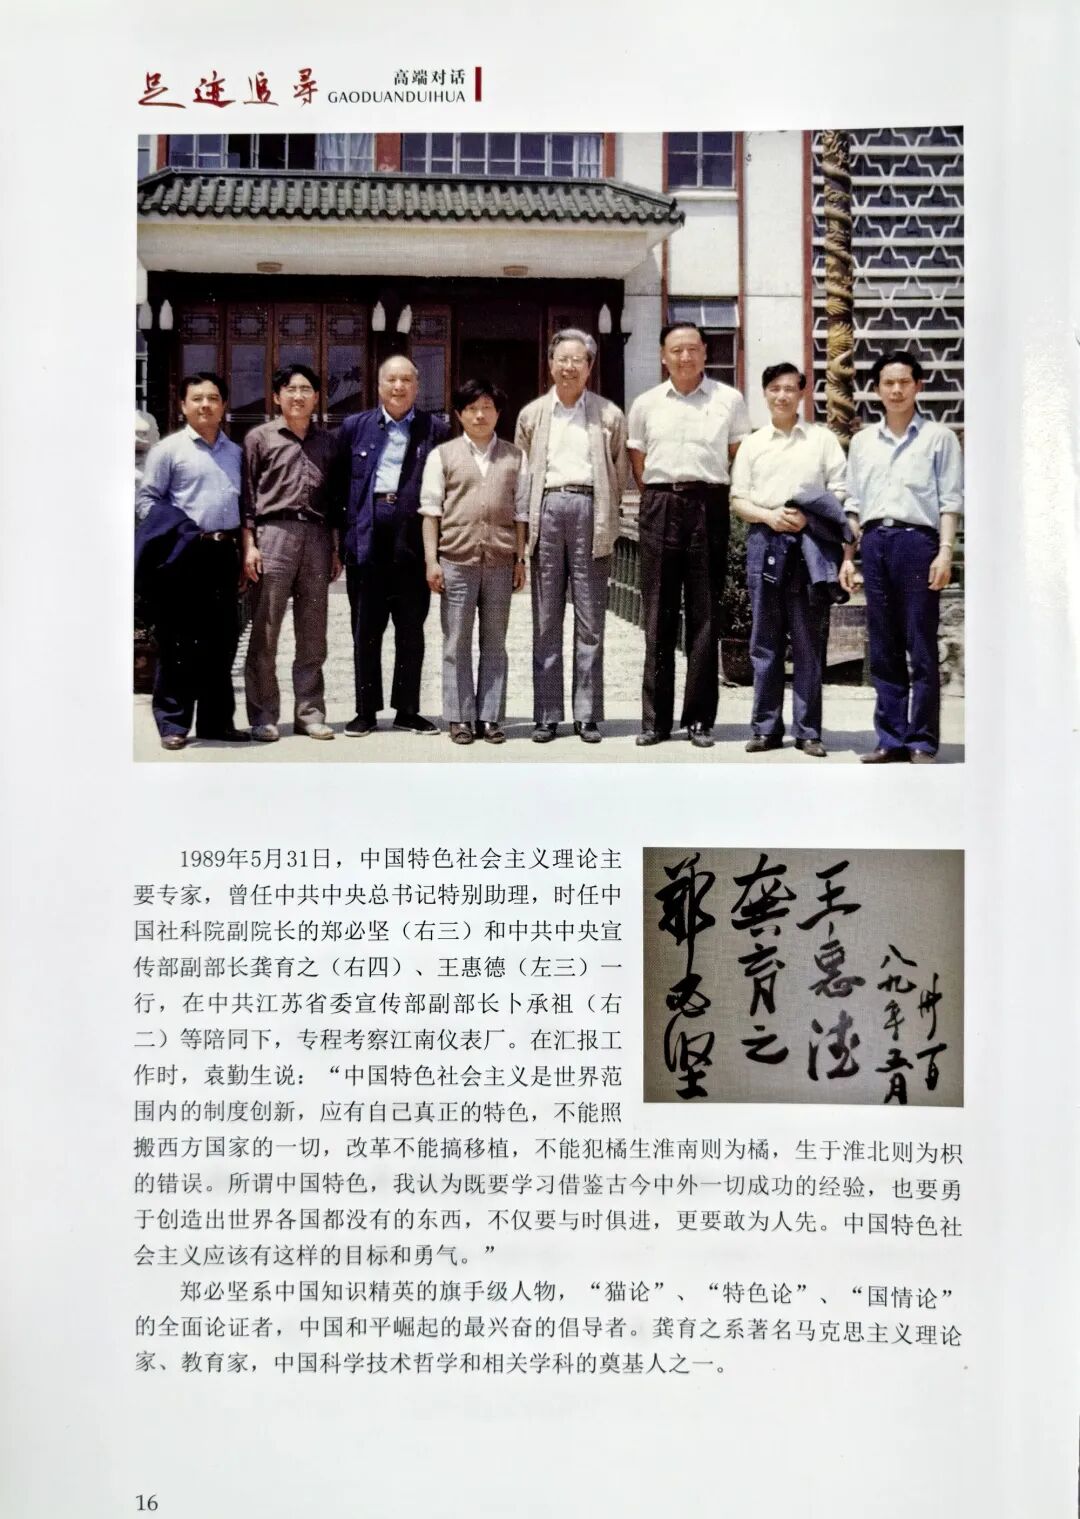 足迹追寻
高端对话
GAODUANDUIHUA
1989年5月31日，中国特色社会主义理论主
要专家，曾任中共中央总书记特别助理，时任中
国社科院副院长的郑必坚（右三）和中共中央宣
传部副部长龚育之（右四）、王惠德（左三）一
行，在中共江苏省委宣传部副部长卜承祖（右
二）等陪同下，专程考察江南仪表厂。在汇报工
作时，袁勤生说：“中国特色社会主义是世界范
围内的制度创新，应有自己真正的特色，不能照
搬西方国家的一切，改革不能搞移植，不能犯橘生淮南则为橘，生于淮北则为枳
的错误。所谓中国特色，我认为既要学习借鉴古今中外一切成功的经验，也要勇
于创造出世界各国都没有的东西，不仅要与时俱进，更要敢为人先。中国特色社
会主义应该有这样的目标和勇气。”
郑必坚系中国知识精英的旗手级人物，“猫论”、“特色论”、“国情论”
的全面论证者，中国和平崛起的最兴奋的倡导者。龚育之系著名马克思主义理论
家、教育家，中国科学技术哲学和相关学科的奠基人之一。
郑必坚
龚育之
王惠德
八九年五月
卅一日
16